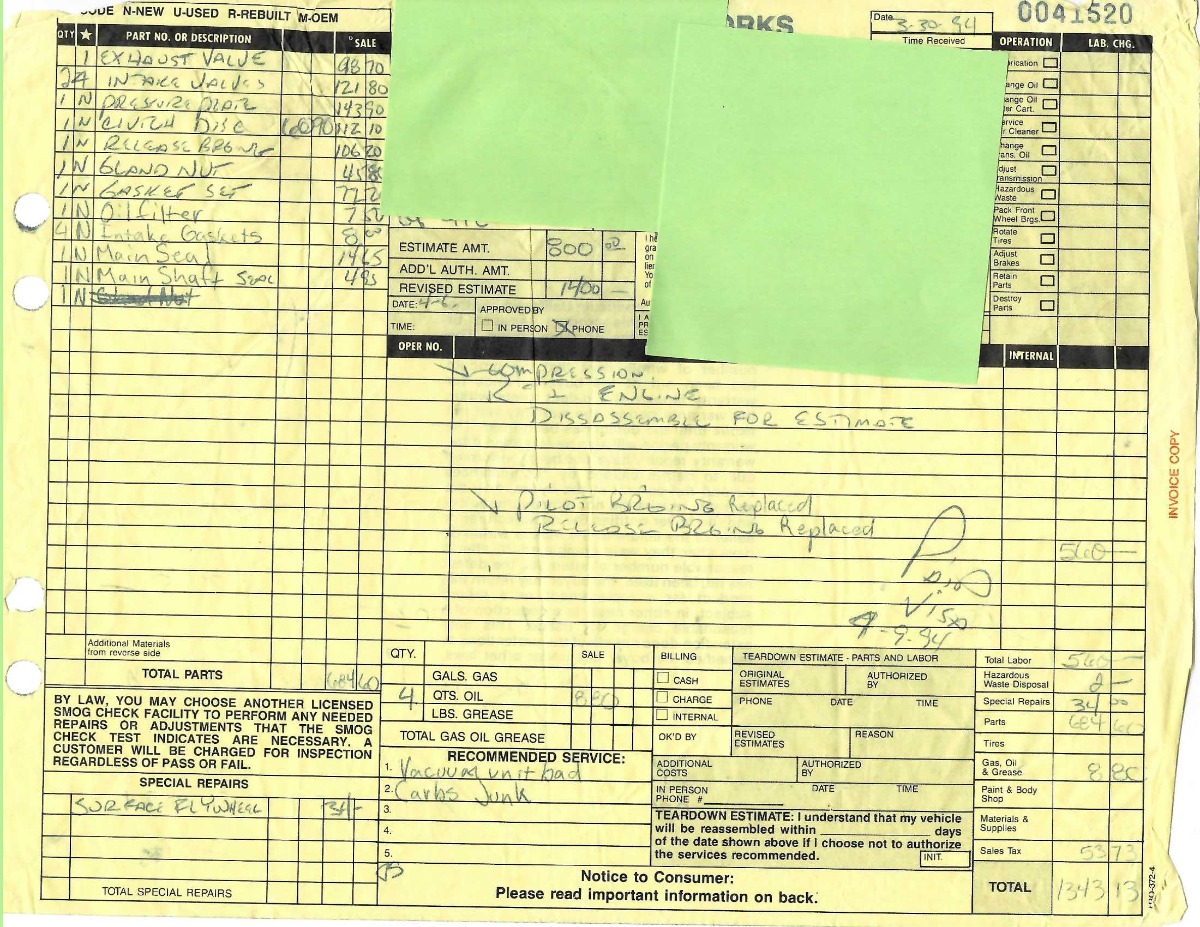 CODE N-NEW U-USED R-REBUILT M-OEM
ORKS
Date 3-30-94
0041520
Time Received
QTY ★ PART NO. OR DESCRIPTION SALE
OPERATION LAB. CHG.
1 EXHAUST VALVE 98 70
24 INTAKE VALVES 121 80
1 N PRESSURE PLATE 143 90
1 N CLUTCH DISC 112 10
1 N RELEASE BRGING 106 20
1 N GLAND NUT
1 N GASKET SET
1 N Oil filter 7 50
4 N Intake Gaskets
1 N Main Seal 14 65
1 N Main Shaft Seal 4 85
1 N
rication
ange Oil
ange Oil
er Cart.
ervice
r Cleaner
hange
ans. Oil
djust
ransmission
Hazardous
Waste
Pack Front
Wheel Brgs.
Rotate
Tires
Adjust
Brakes
Retain
Parts
Destroy
Parts
ESTIMATE AMT. 800 00
ADD'L AUTH. AMT.
REVISED ESTIMATE 1400 —
DATE: 4-6 APPROVED BY
TIME: IN PERSON PHONE
OPER NO. INTERNAL
COMPRESSION
R & I ENGINE
DISSASSEMBLE FOR ESTIMATE
PILOT BRGING Replaced
RELEASE BRGING Replaced
560 —
Paid
Visa
4-9-94
INVOICE COPY
Additional Materials
from reverse side
TOTAL PARTS 684 60
BY LAW, YOU MAY CHOOSE ANOTHER LICENSED
SMOG CHECK FACILITY TO PERFORM ANY NEEDED
REPAIRS OR ADJUSTMENTS THAT THE SMOG
CHECK TEST INDICATES ARE NECESSARY. A
CUSTOMER WILL BE CHARGED FOR INSPECTION
REGARDLESS OF PASS OR FAIL.
SPECIAL REPAIRS
SURFACE FLYWHEEL 34 —
TOTAL SPECIAL REPAIRS
QTY. SALE
GALS. GAS
4 QTS. OIL 8 80
LBS. GREASE
TOTAL GAS OIL GREASE
RECOMMENDED SERVICE:
1. Vacuum unit bad
2. Carbs Junk
3.
4.
5.
BILLING
CASH
CHARGE
INTERNAL
TEARDOWN ESTIMATE - PARTS AND LABOR
ORIGINAL ESTIMATES AUTHORIZED BY
PHONE DATE TIME
OK'D BY REVISED ESTIMATES REASON
ADDITIONAL COSTS AUTHORIZED BY
IN PERSON PHONE # DATE TIME
TEARDOWN ESTIMATE: I understand that my vehicle
will be reassembled within ____ days
of the date shown above if I choose not to authorize
the services recommended. INIT.
Notice to Consumer:
Please read important information on back.
Total Labor 560 —
Hazardous Waste Disposal 2 —
Special Repairs 34 00
Parts 684 60
Tires
Gas, Oil & Grease 8 80
Paint & Body Shop
Materials & Supplies
Sales Tax 53 73
TOTAL 1343 13